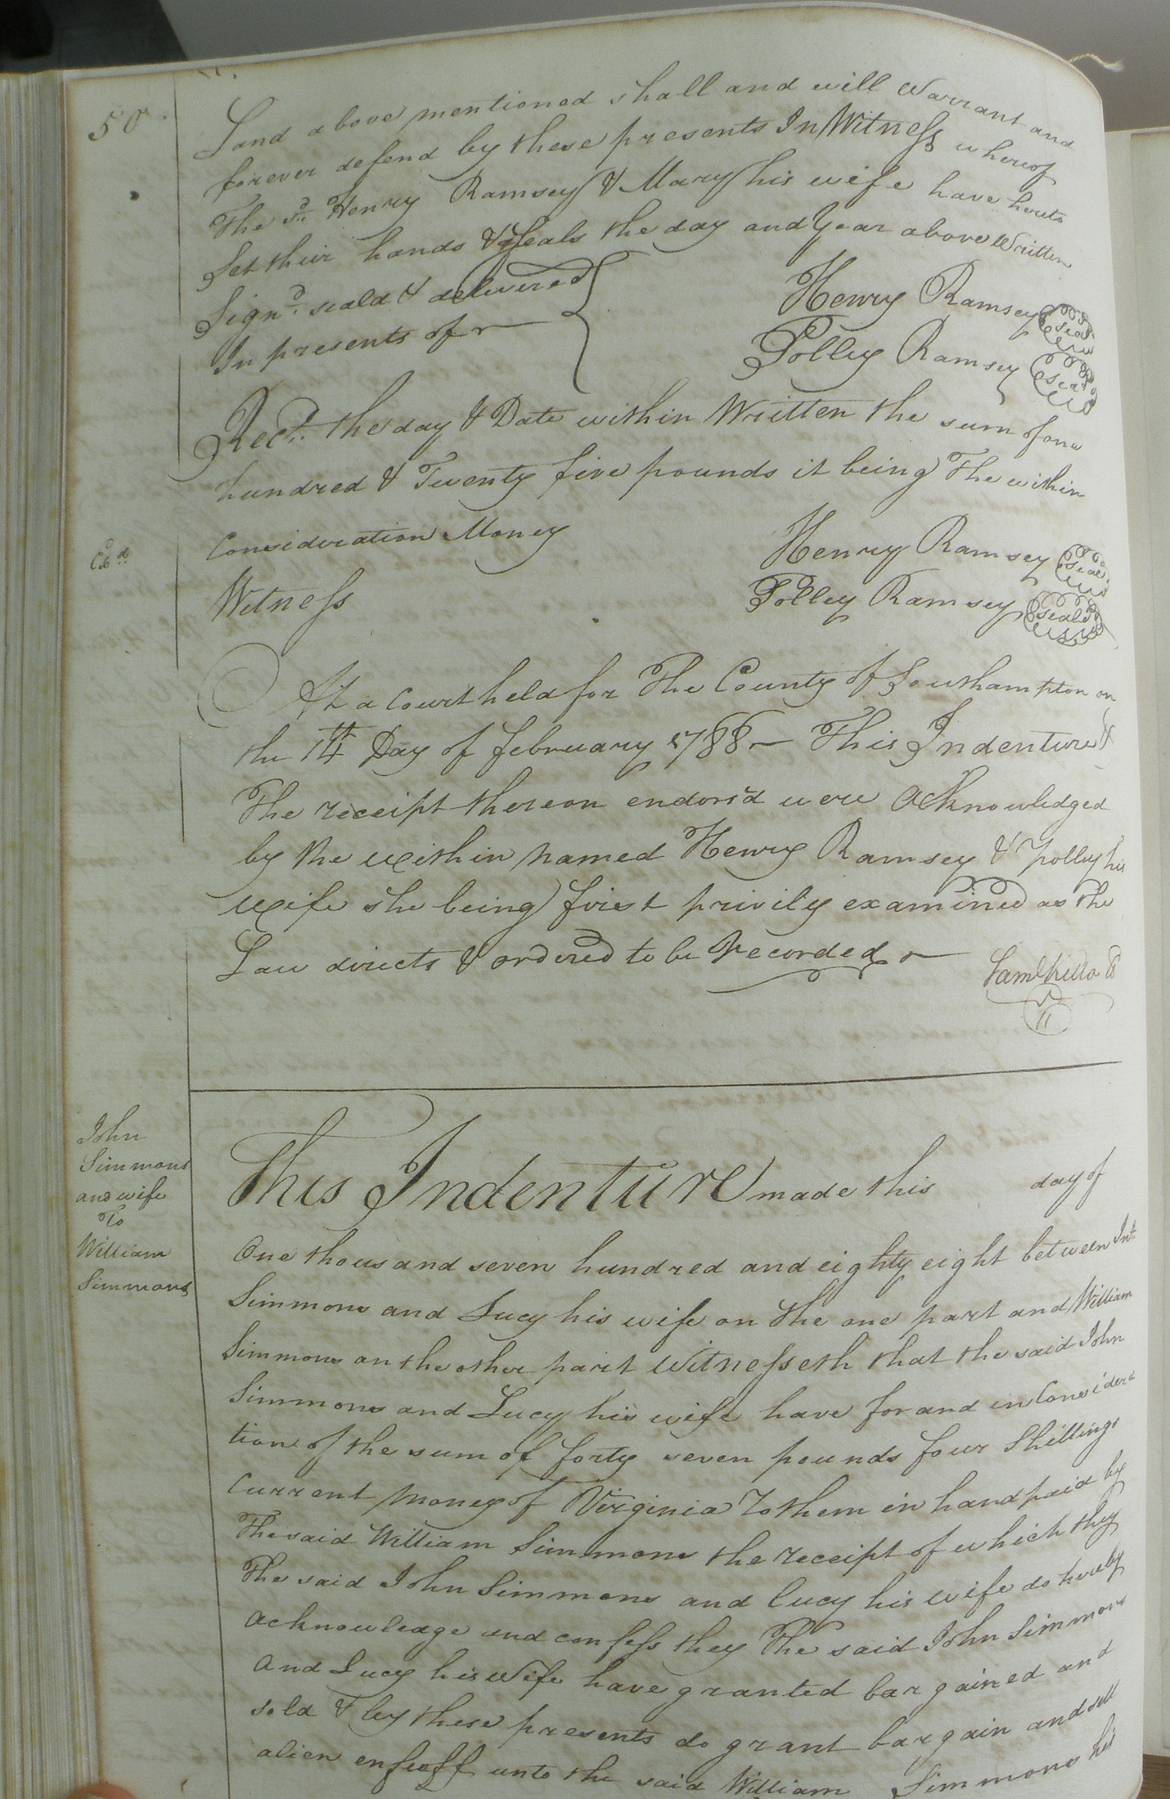 50.
Land above mentioned shall and will Warrant and
forever defend by these presents In Witness whereof
The sd. Henry Ramsey & Mary his wife have hereto
Set their hands & Seals the day and Year above Written
Signd. seald & delivered
In presents of
Henry Ramsey seal
Polley Ramsey seal
Recd. the day & Date within Written the sum of one
hundred & Twenty five pounds it being The within
Consideration Money
Witness
Henry Ramsey seal
Polley Ramsey seal
At a Court held for The County of Southampton on
the 14th Day of february 1788 This Indenture &
The receipt thereon endors'd were acknowledged
by the within named Henry Ramsey & polley his
wife she being first privily examined as the
Law directs & ordered to be recorded
John
Simmons
and wife
To
William
Simmons
This Indenture made this day of
One thousand seven hundred and eighty eight between Jno
Simmons and Lucy his wife on the one part and William
Simmons on the other part Witnesseth that the said John
Simmons and Lucy his wife have for and in Considera
tion of the sum of forty seven pounds four Shillings
Current money of Virginia To them in hand paid by
The said William Simmons the receipt of which they
The said John Simmons and Lucy his wife do hereby
acknowledge and confess they The said John Simmons
and Lucy his Wife have granted bargained and
sold & by these presents do grant bargain and sell
alien enfeoff unto the said William Simmons his